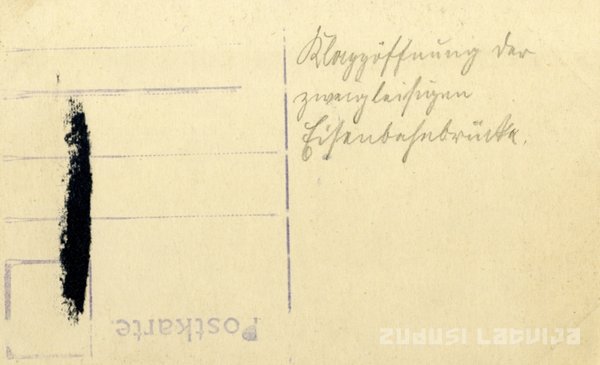 Klappöffnung der
zweigleisigen
Eisenbahnbrücke.
Postkarte.
ZUDUSI LATVIJA